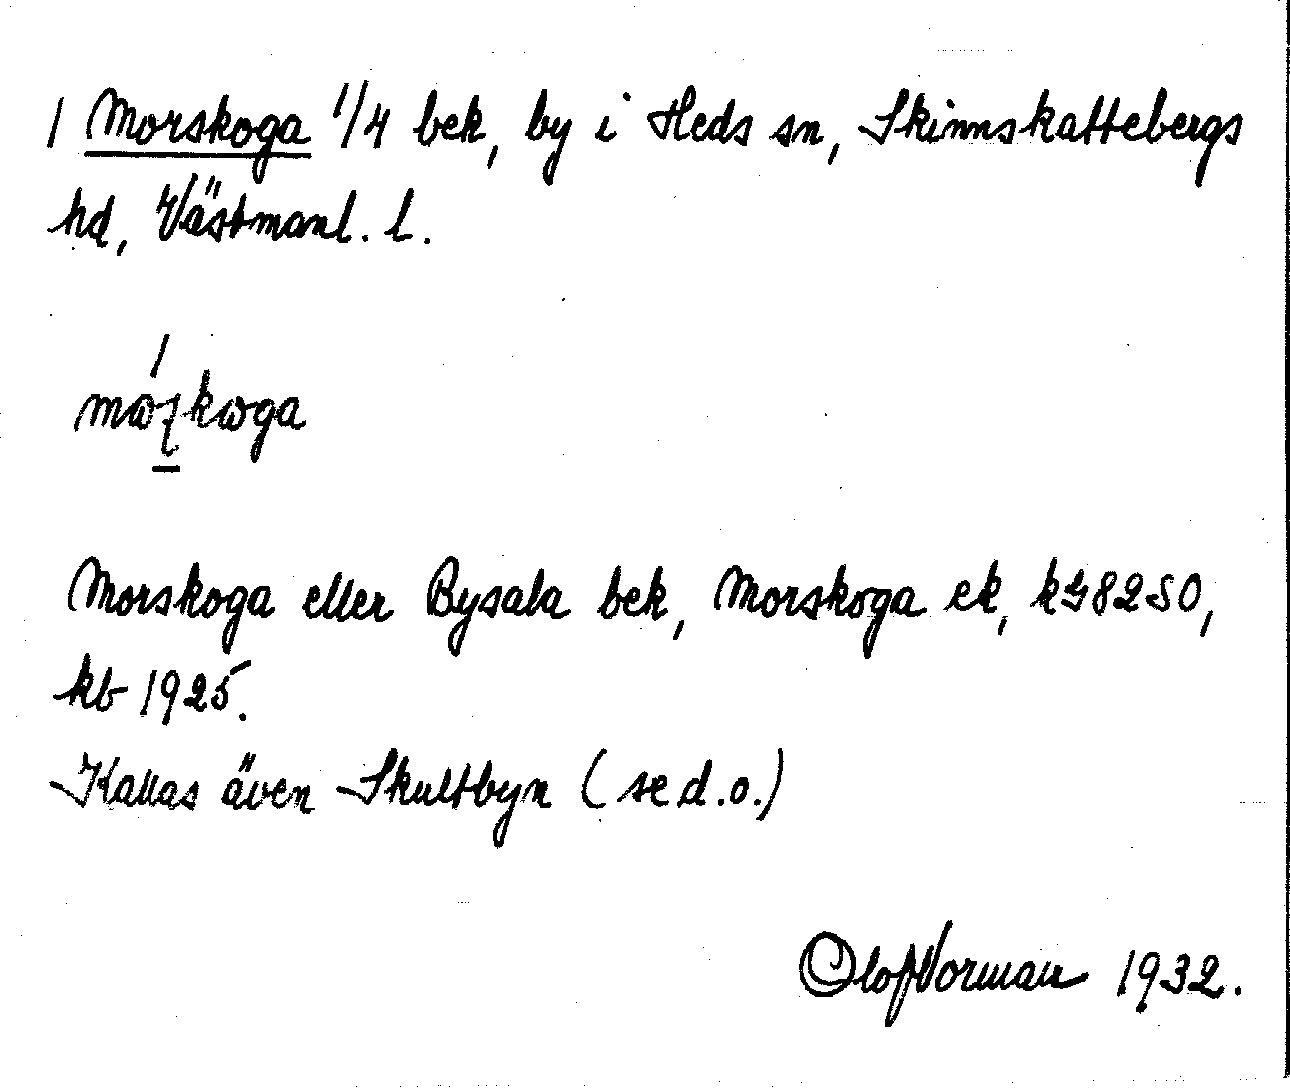 1 Morskoga 1/4 bek, by i Heds sn, Skinnskattebergs
hd, Västmanl. l.
Morskoga eller Bysala bek, Morskoga ek,
kb 1925.
Kallas även Skultbyn (se d.o.)
Olof Norman 1932.